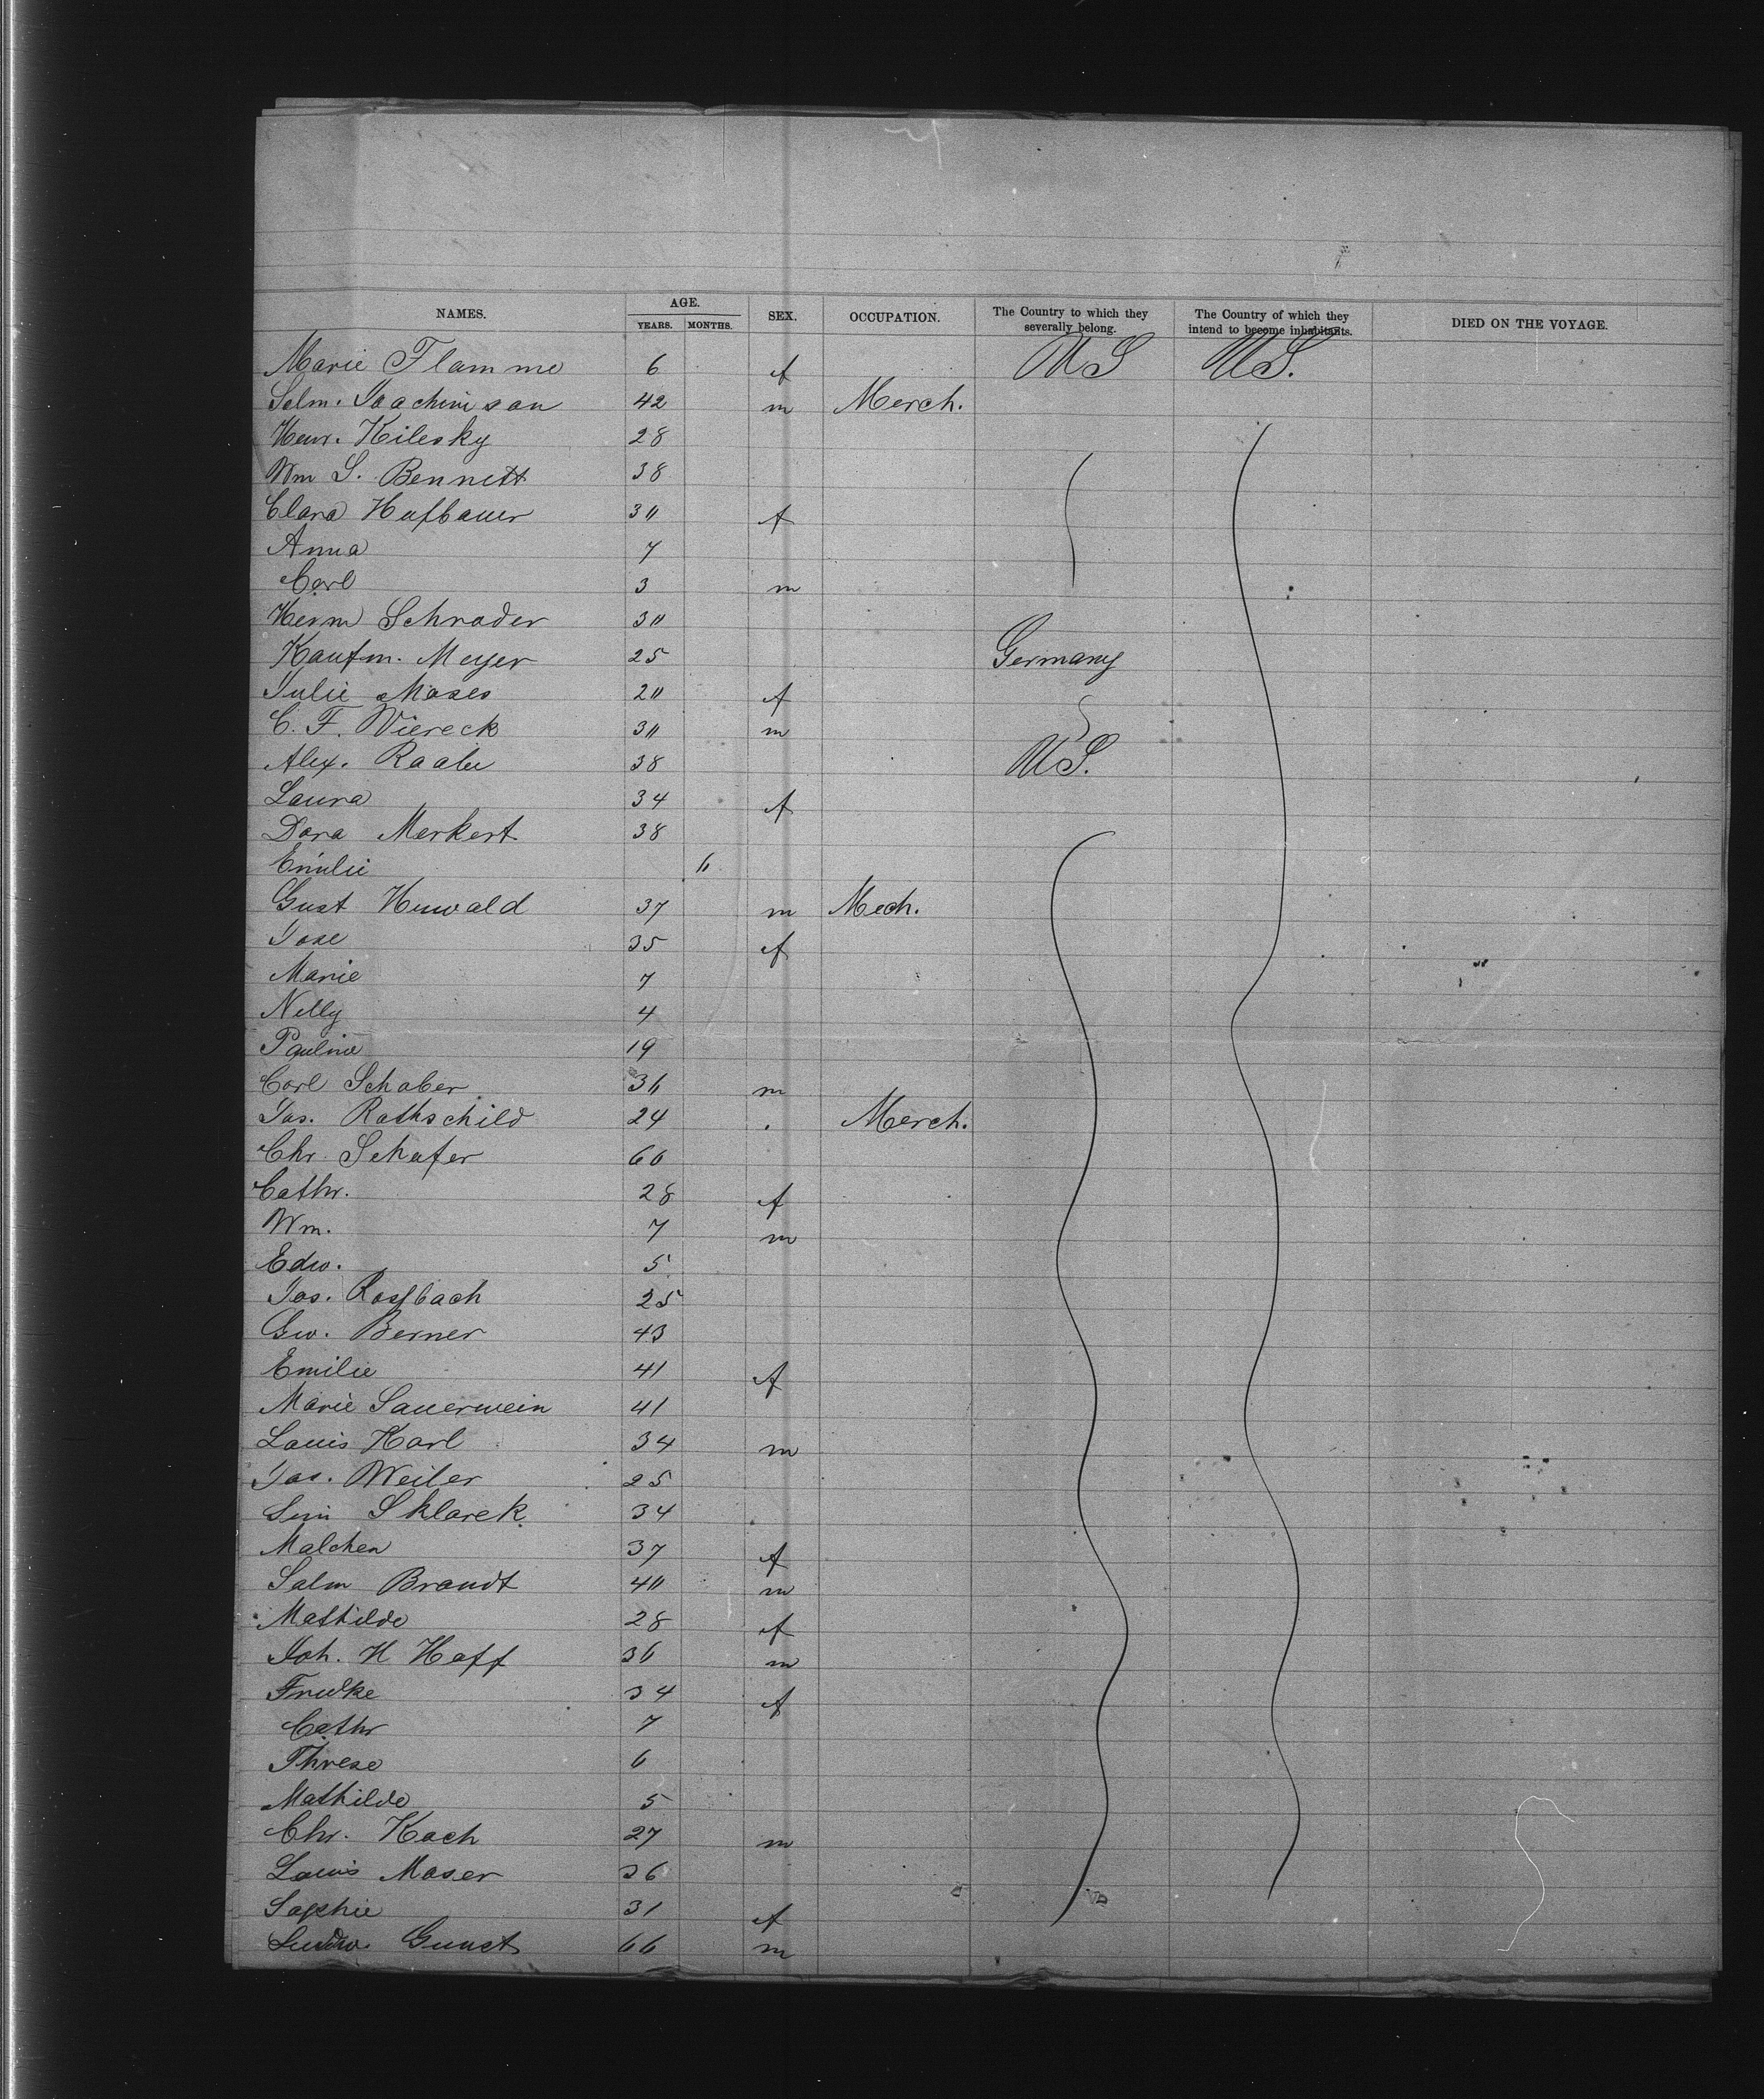 NAMES. AGE. SEX. OCCUPATION. The Country to which they severally belong. The Country of which they intend to become inhabitants. DIED ON THE VOYAGE.
YEARS. MONTHS.
Marie Flamme 6 f US US.
Selm. Joachimson 42 m Merch.
Henr. Kilesky 28
Wm S. Bennett 38
Clara Hufbauer 30 f
Anna 7
Carl 3 m
Herm Schrader 30
Kaufm. Meyer 25 Germany
Julie Moses 20 f
C. F. Viereck 30 m
Alex. Raabe 38 US.
Laura 34 f
Dora Merkert 38
Emilie 6
Gust Huwald 37 m Mech.
Jose 35 f
Marie 7
Nelly 4
Pauline 19
Carl Schaber 36 m
Jos. Rothschild 24 Merch.
Chr. Schafer 60
Cathr. 28 f
Wm. 7 m
Edw. 5
Jos. Rossbach 25
Gw. Berner 43
Emilie 41 f
Marie Sauerwein 41
Louis Karl 34 m
Jos. Weiler 25
Sim Sklarek 34
Malchen 37 f
Salm Brandt 40 m
Mathilde 28 f
Joh. H Hoff 36 m
Friedke 34 f
Cathr 7
Threse 6
Mathilde 5
Chr. Koch 27 m
Louis Moser 36
Sophie 31 f
Ludw. Gunst 66 m